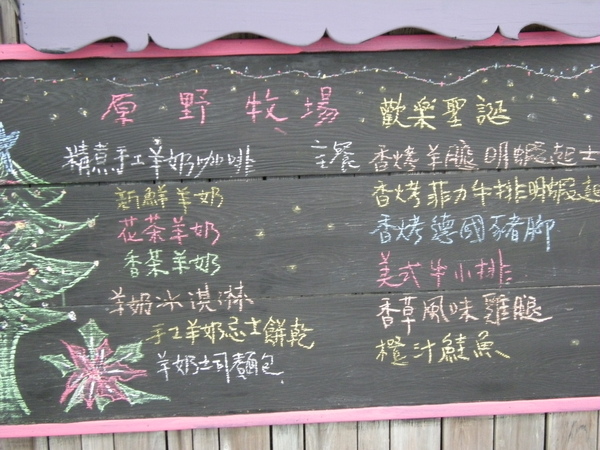 原野牧場 歡樂聖誕
精煮手工羊奶咖啡
新鮮羊奶
花茶羊奶
香茶羊奶
羊奶冰淇淋
手工羊奶起士餅乾
羊奶土司麵包
主餐 香烤羊腿明蝦起士
香烤菲力牛排明蝦起
香烤德國豬腳
美式牛小排
香草風味雞腿
橙汁鮭魚